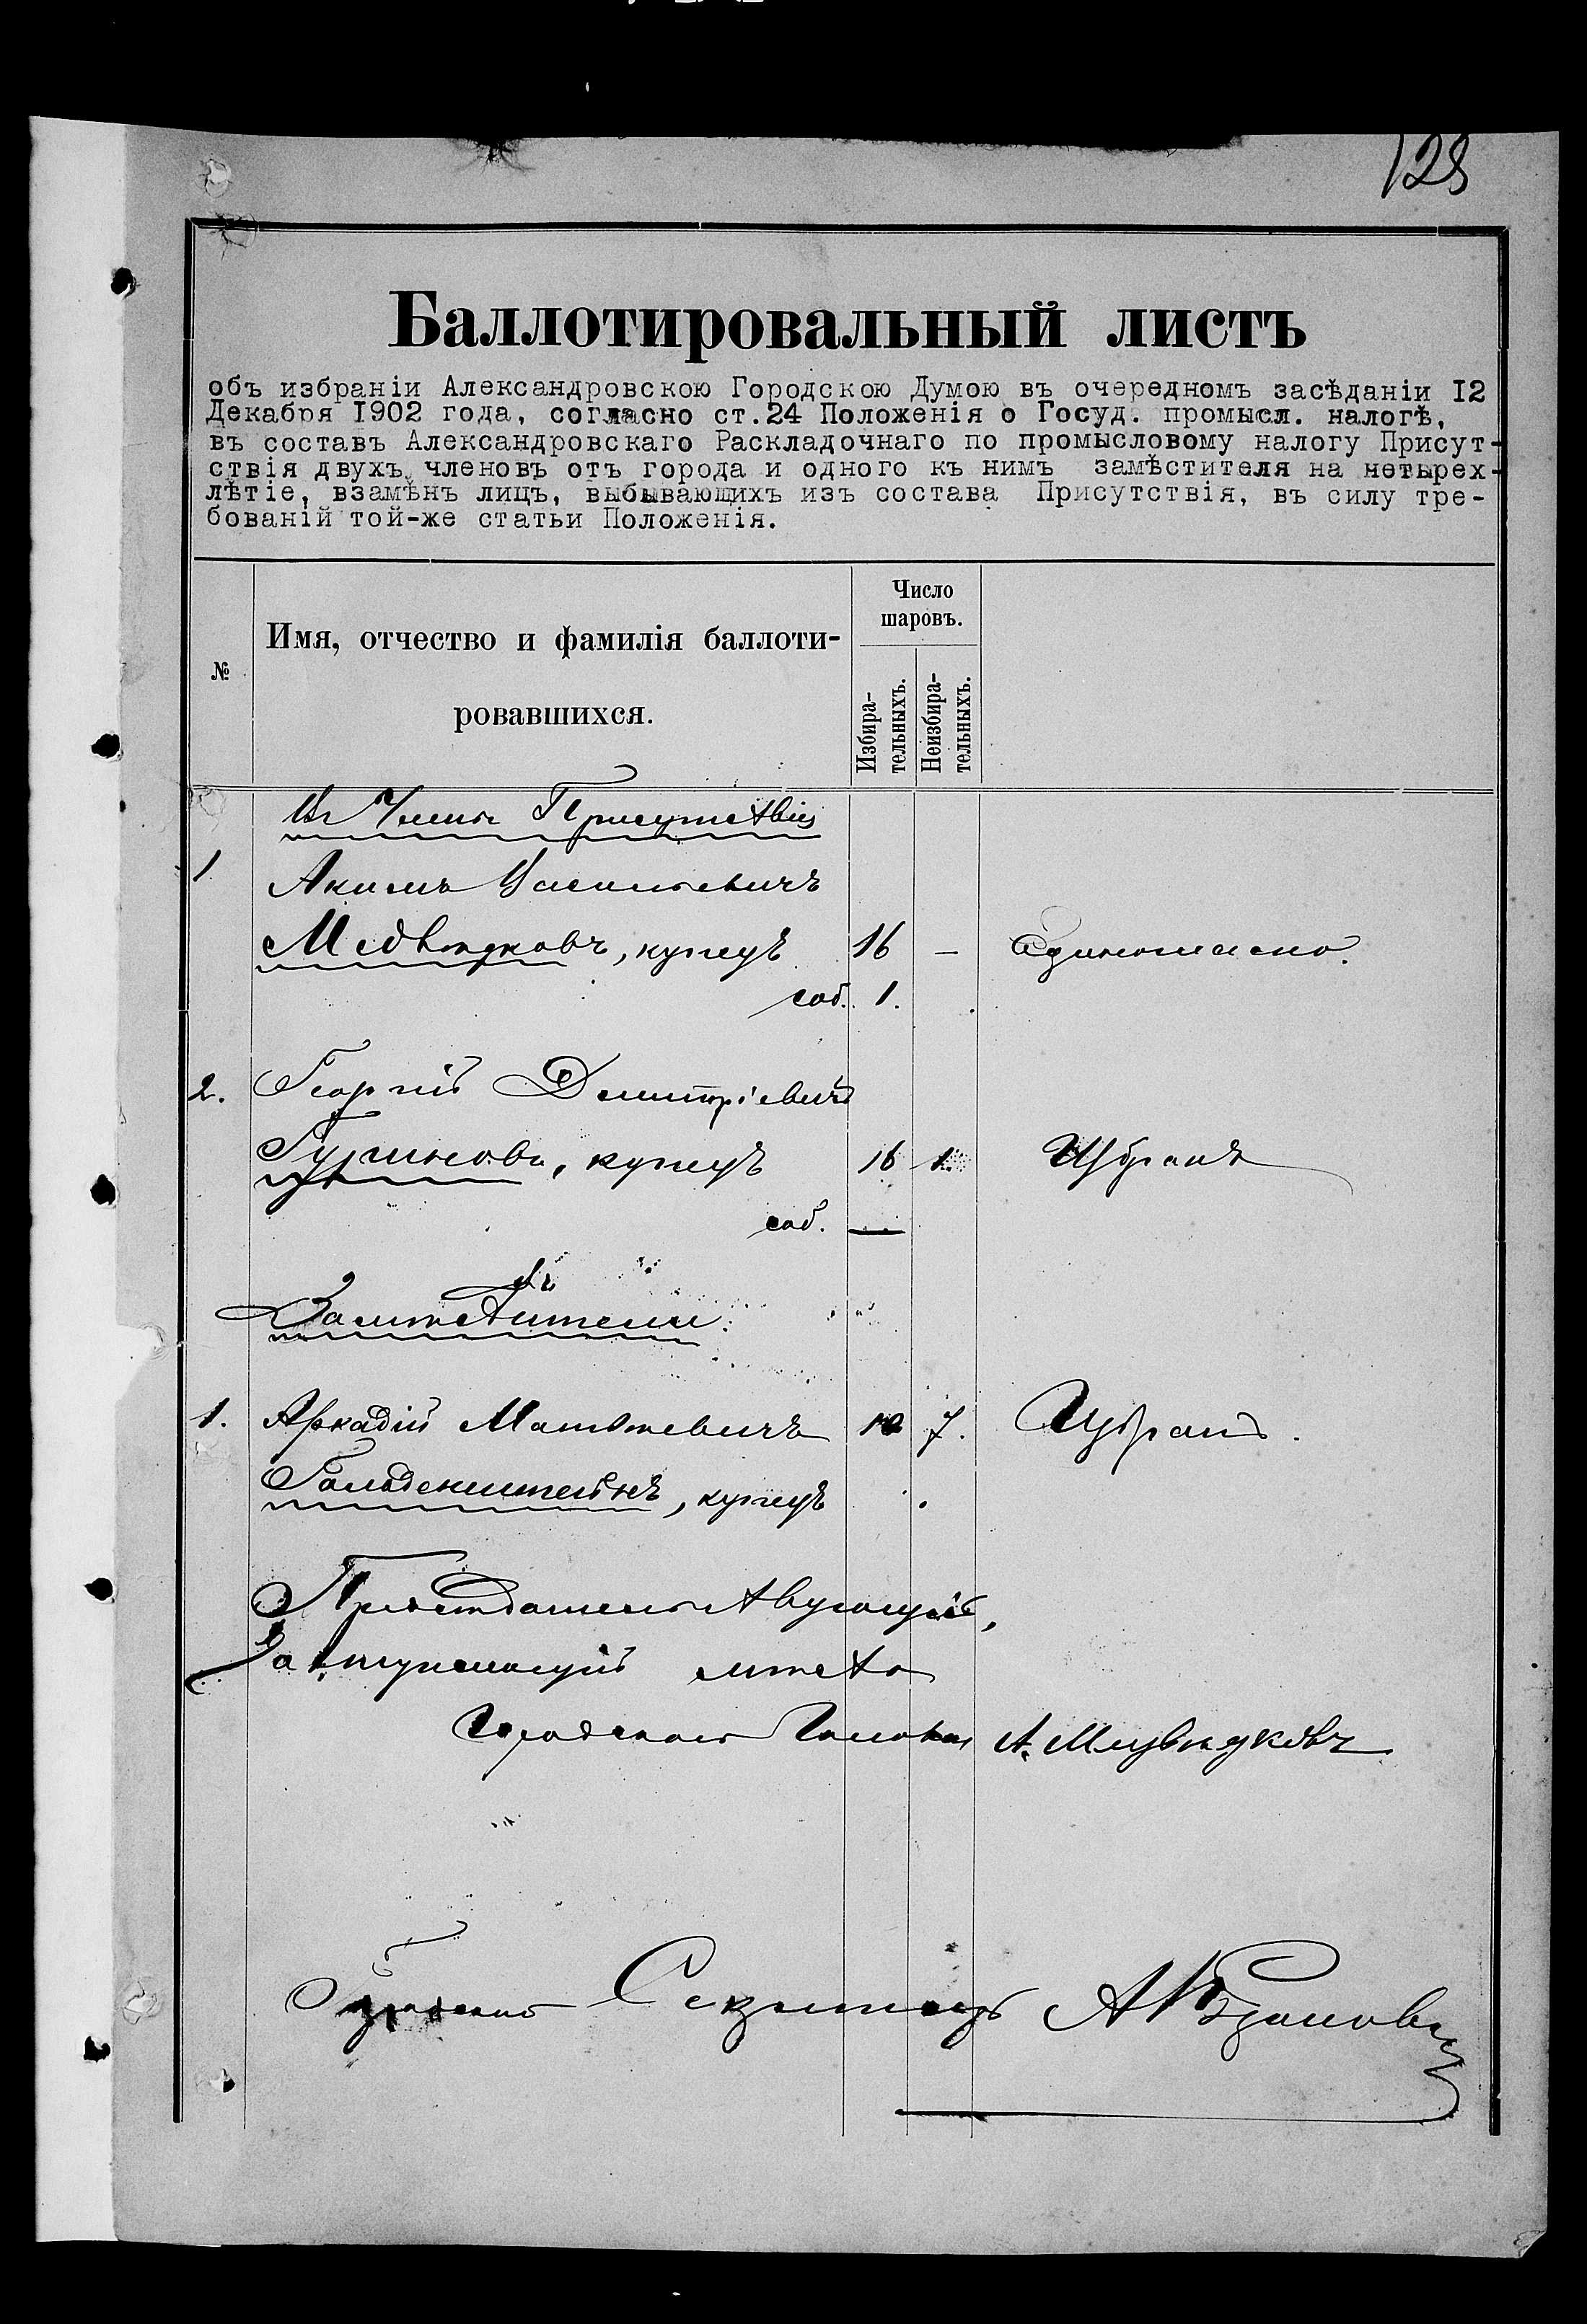 128
Баллотировальный листъ
объ избраніи Александровскою Городскою Думою въ очередномъ засѣданіи I2
Декабря I902 года, согласно ст.24 Положенія о Госуд. промысл. налогѣ,
въ составъ Александровскаго Раскладочнаго по промысловому налогу Присут-
ствія двухъ членовъ отъ города и одного къ нимъ замѣстителя на четырех-
лѣтіе, взамѣнъ лицъ, выбывающихъ из состава Присутствія, въ силу тре-
бованій той-же статьи Положенія.
№
Имя, отчество и фамилія баллоти-
ровавшихся.
Число
шаровъ.
Избира-
тельныхъ.
Неизбира-
тельныхъ.
Въ Члены Присутствія
1 Акимъ Васильевичъ
Медвѣдковъ, купецъ 16 — Единогласно.
соб. 1.
2. Георгій Дмитріевичъ
купецъ 16 1 Избранъ
соб. —
Въ
Замѣстители:
1. Аркадій Матвѣевичъ 10 7. Избранъ.
Гольденштейнъ, купецъ
Предсѣдательствующій,
Заступающій мѣсто
Городского Головы А. Медвѣдковъ
Городской Секретарь